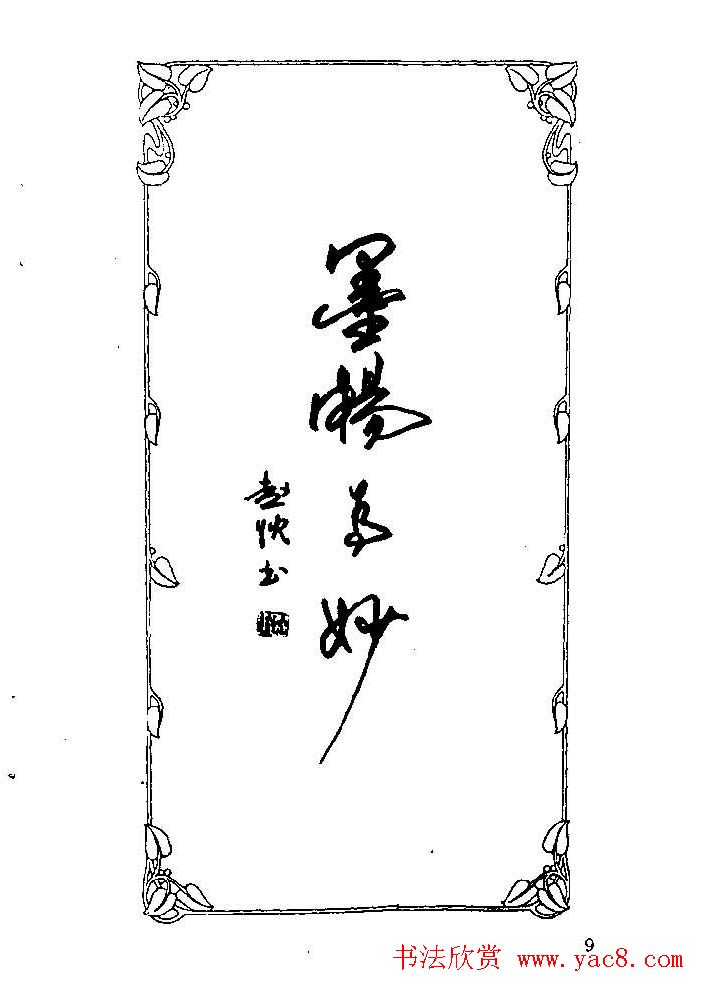 墨暢为妙
赵 书
9
书法欣赏 www.yac8.com